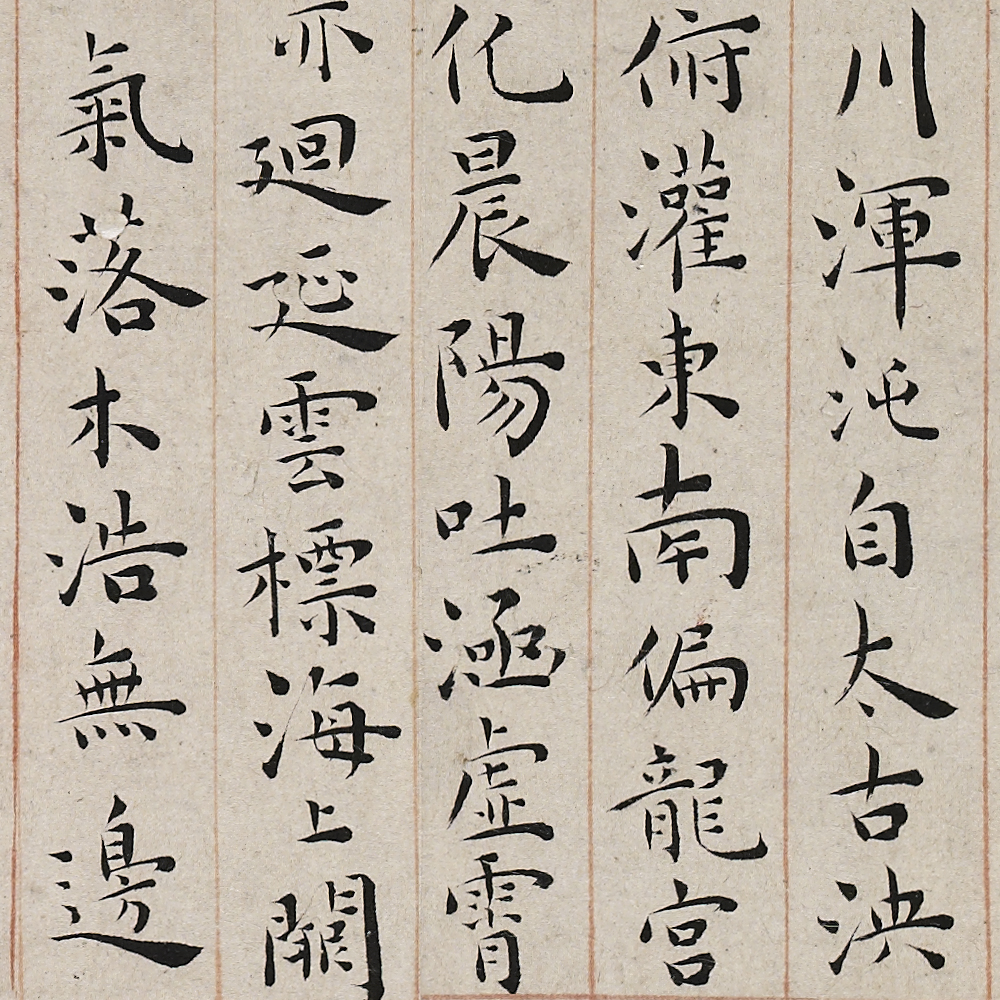 川渾沌自太古泱
俯灌東南偏龍宮
化晨陽吐涵虛霄
亦廻延雲標海上關
氣落木浩無邊